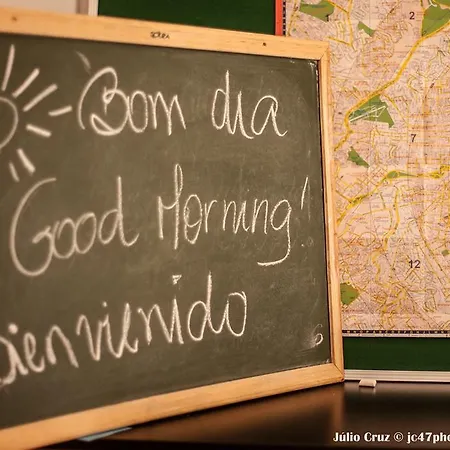 Bom dia
Good Morning!
Bienvenido
2
12
Júlio Cruz © jc47pho